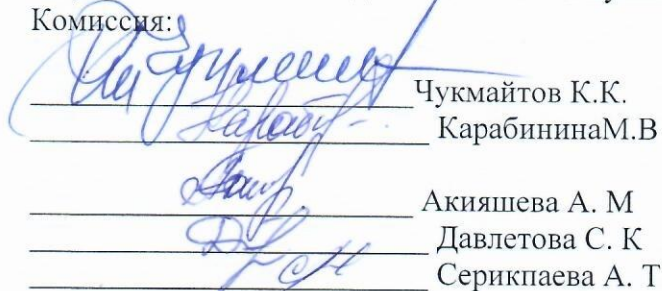 Комиссия:
Чукмайтов К.К.
КарабининаМ.В
Акияшева А. М
Давлетова С. К
Серикпаева А. Т